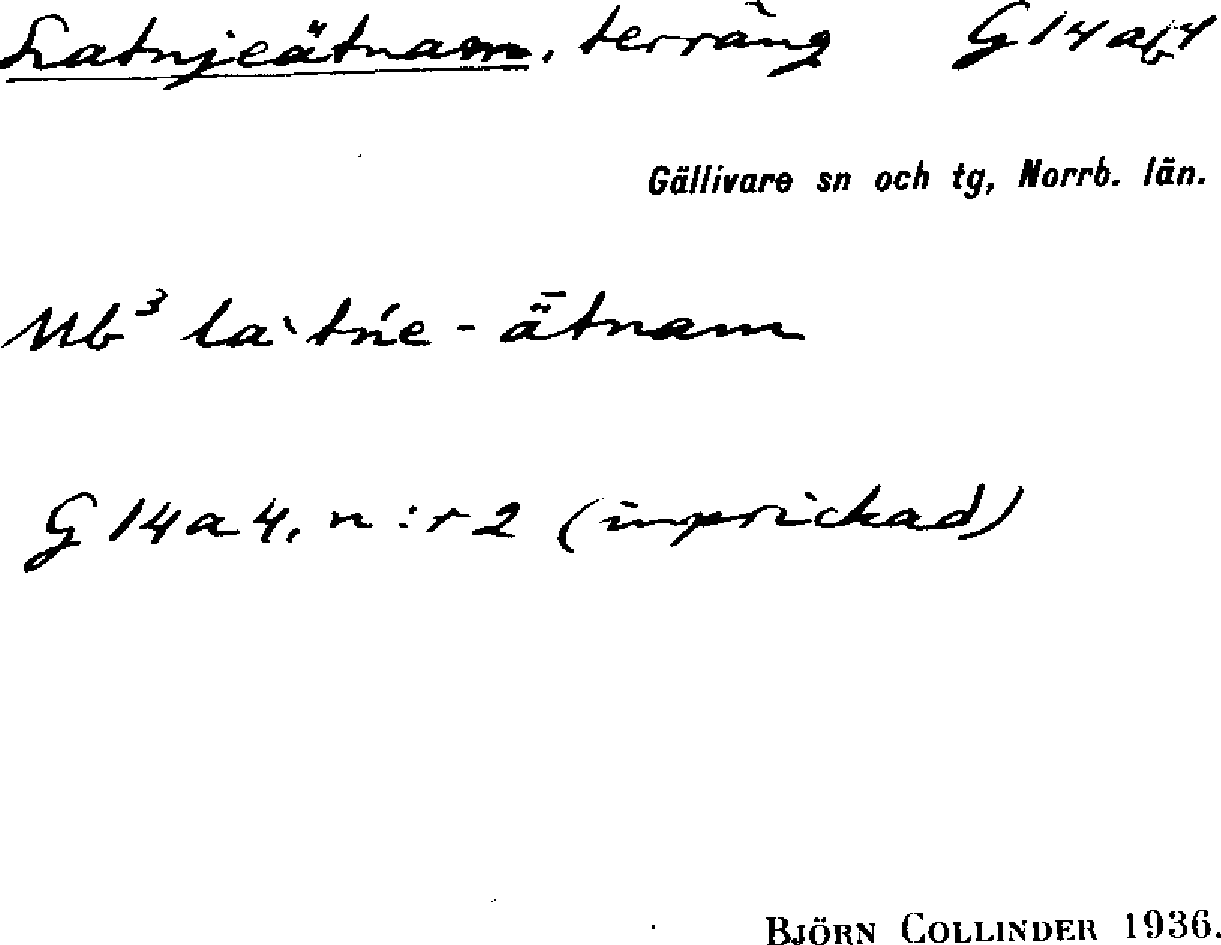 Latnjeätnam, terräng G14a4
Gällivare sn och tg, Norrb. län.
Mb³ laˋtńe - ǟtnam
G 14a 4, n:r 2 (inprickad)
BJÖRN COLLINDER 1936.